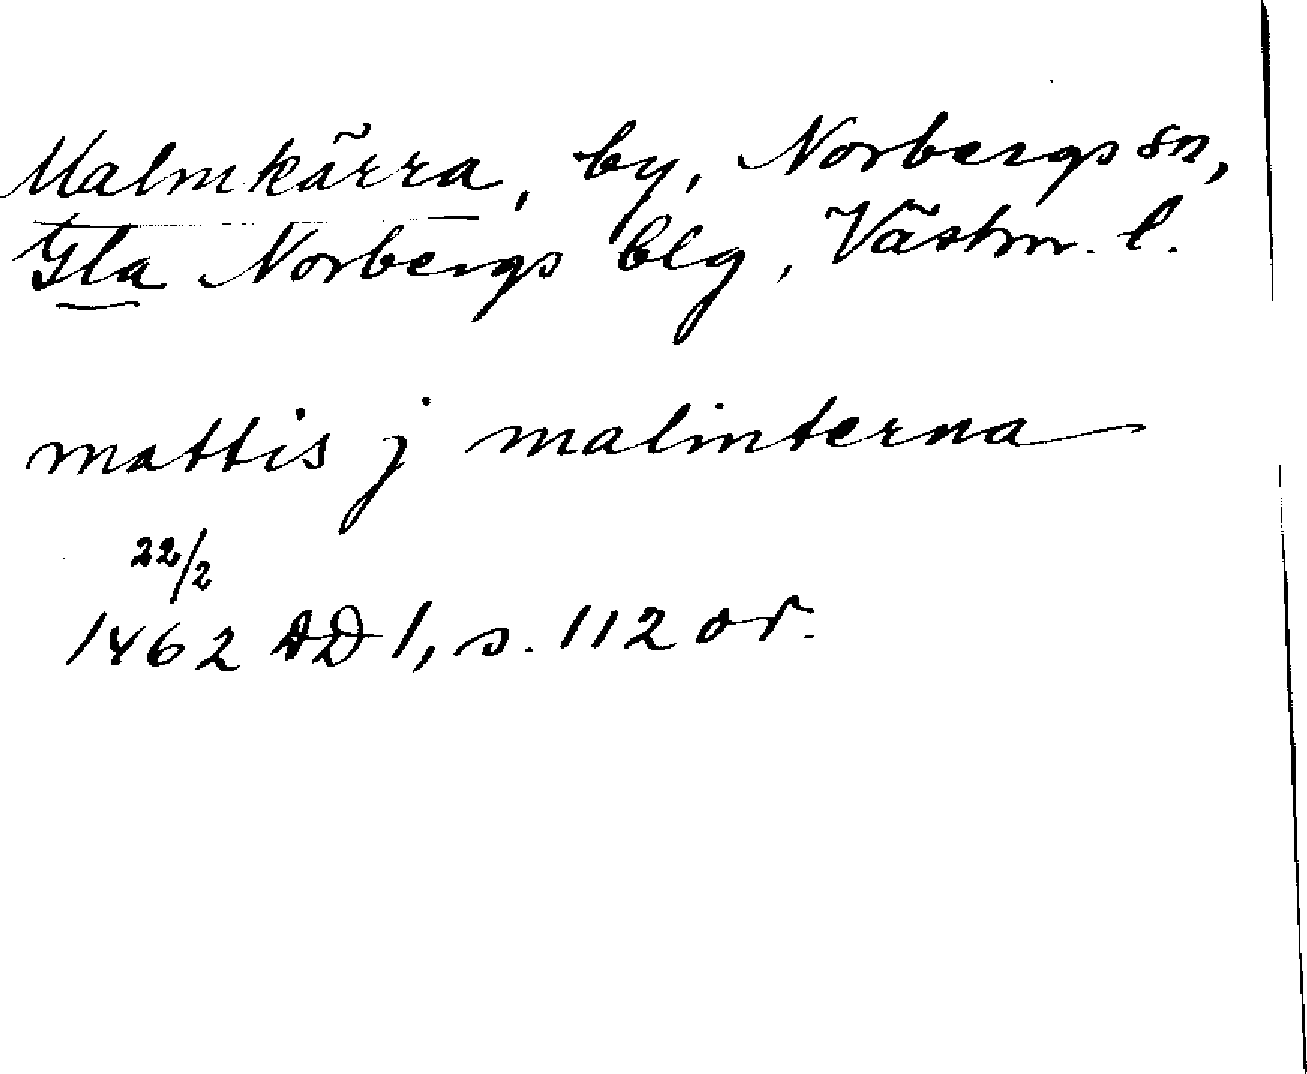 Malmkärra, by, Norbergs sn,
Gla Norbergs blg, Västm. l.
mattis j malmterna
22/2
1462 AD 1, s. 112 or.